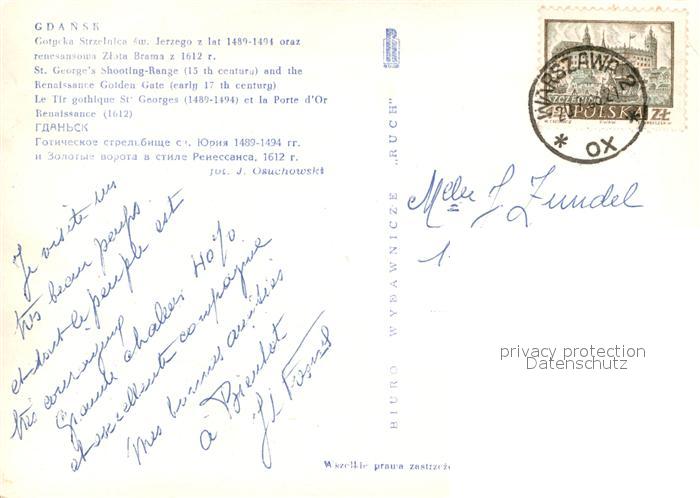 GDAŃSK
Gotycka Strzelnica św. Jerzego z lat 1489-1494 oraz
renesansowa Złota Brama z 1612 r.
St. George's Shooting-Range (15 th century) and the
Renaissance Golden Gate (early 17 th century)
Le Tir gothique St Georges (1489-1494) et la Porte d'Or
Renaissance (1612)
ГДАНЬСК
Готическое стрельбище св. Юрия 1489-1494 гг.
и Золотые ворота в стиле Ренессанса, 1612 г.
fot. J. Osuchowski
Je visite un
très beau pays
et dont le peuple est
très courageux
Grande chaleur 40%
et excellente compagnie
Mes bonnes amitiés
à Bientôt
BIURO WYDAWNICZE „RUCH"
WARSZAWA 2
OX
SZCZECIN
POLSKA ZŁ
Mde J Zundel
1
privacy protection
Datenschutz
Wszelkie prawa zastrzeż